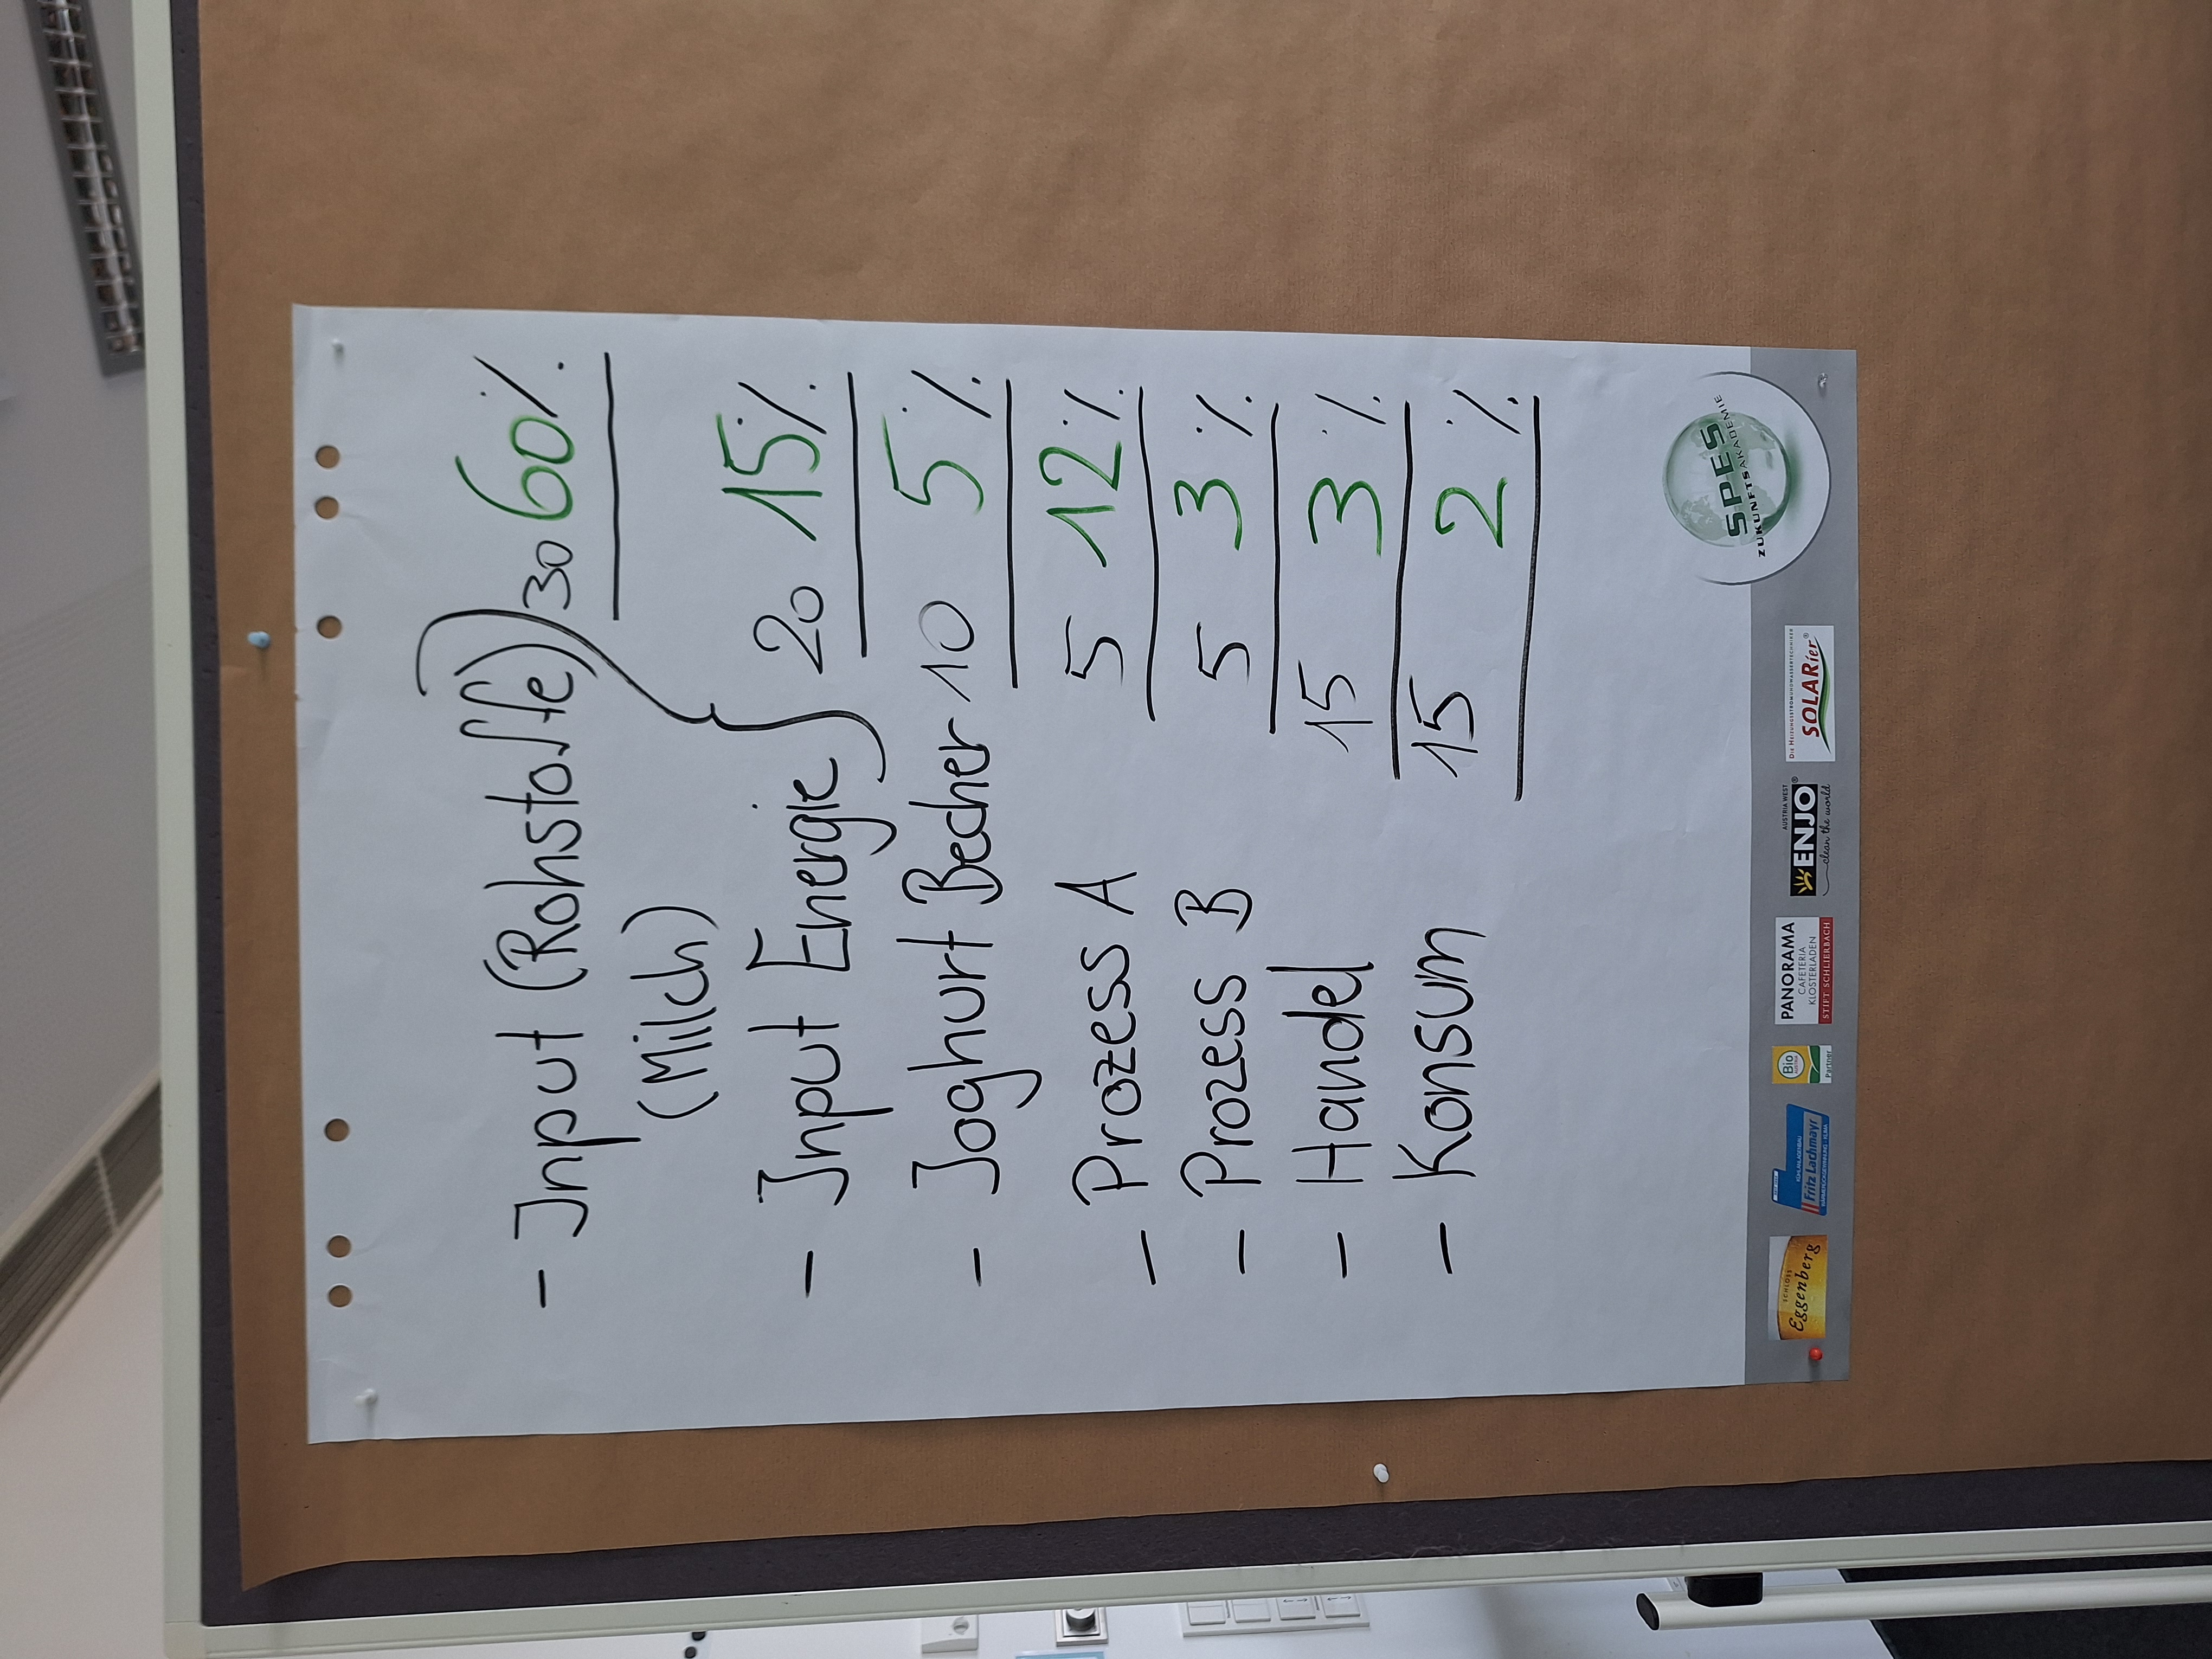 - Input (Rohstoffe) 30 60%
(Milch)
- Input Energie } 20 15%
- Joghurt Becher 10 5%
- Prozess A 5 12%
- Prozess B 5 3%
- Handel 15 3%
- Konsum 15 2%
SPES
ZUKUNFTSAKADEMIE
SCHLOSS
Eggenberg
Fritz Lachmayr
Bio
Partner
PANORAMA
CAFETERIA
KLOSTERLADEN
STIFT SCHLIERBACH
AUSTRIA WEST
ENJO®
clean the world
SOLARier®